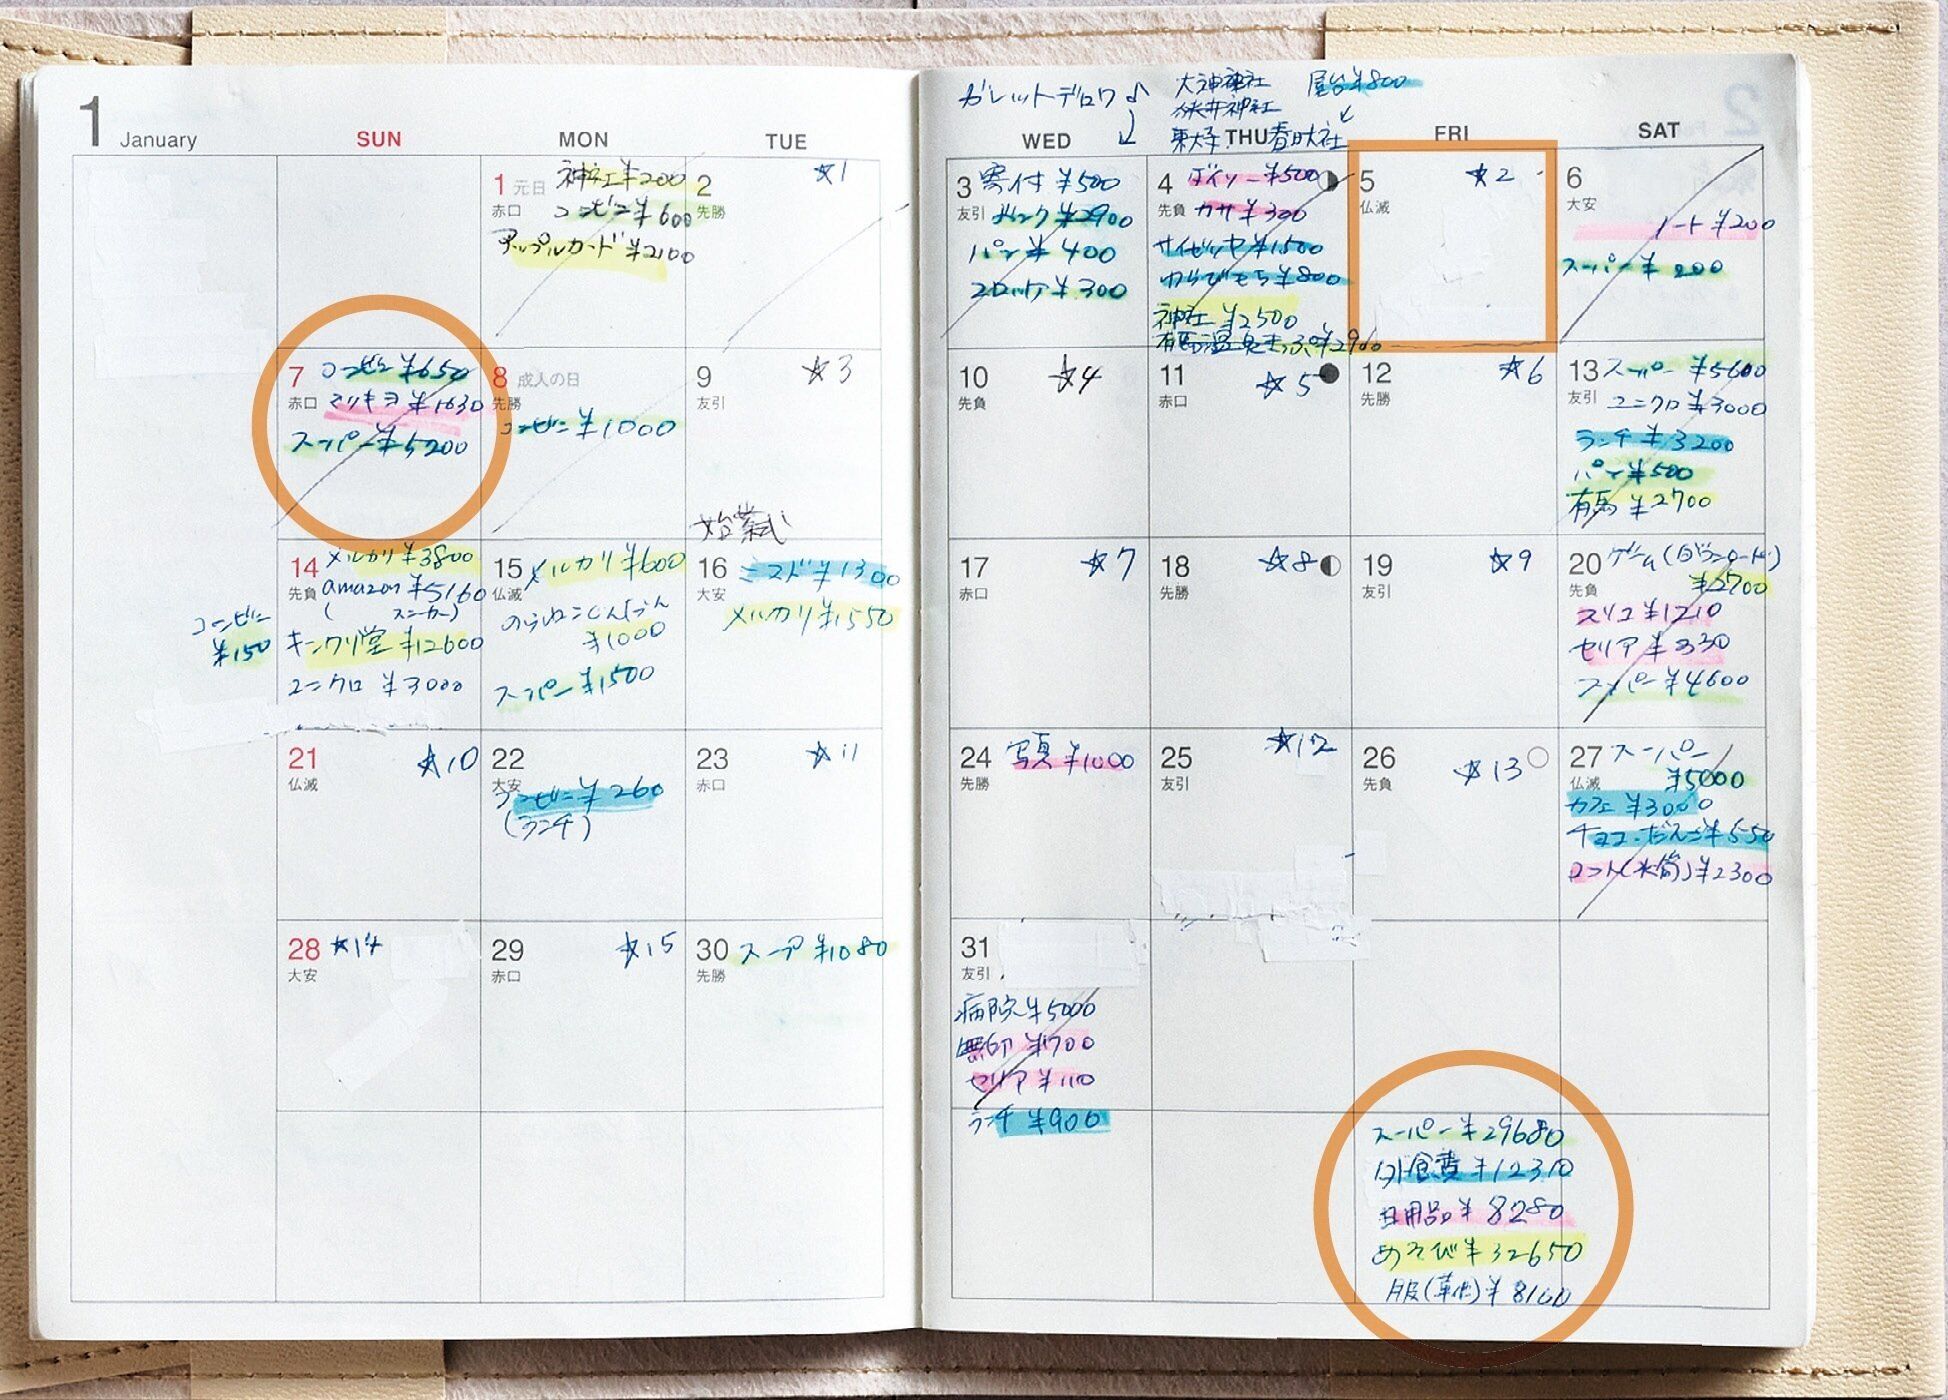 1 January
SUN MON TUE
ガレットデロワ♪
大神神社 屋台¥800
狭井神社
東大寺 春日大社
WED THU FRI SAT
1 元日 神社¥200
赤口 コンビニ¥600
アップルカード ¥2100
2 ☆1
先勝
3 寄付 ¥500
友引
パン ¥400
コロッケ ¥300
4 ダイソー ¥500
先負 カサ ¥300
サイゼリヤ ¥1500
わらびもち ¥800
神社 ¥2500
有馬温泉きっぷ ¥2900
5 ☆2
仏滅
6
大安
ノート ¥200
スーパー ¥200
7 コンビニ ¥650
赤口 マツキヨ ¥1630
スーパー ¥5200
8 成人の日
先勝
コンビニ ¥1000
9 ☆3
友引
始業式
10 ☆4
先負
11 ☆5
赤口
12 ☆6
先勝
13 スーパー ¥5600
友引 ユニクロ ¥3000
ランチ ¥3200
パン ¥500
有馬 ¥2700
コンビニ
¥150
14 メルカリ ¥3800
先負 amazon ¥5160
(スニーカー)
キンクリ堂 ¥12600
ユニクロ ¥3000
15 メルカリ ¥600
仏滅
¥1000
スーパー ¥1500
16 ミスド ¥1300
大安 メルカリ ¥1550
17 ☆7
赤口
18 ☆8
先勝
19 ☆9
友引
20 ゲーム(ダウンロード)
先負 ¥2700
スリコ ¥1210
セリア ¥330
スーパー ¥4600
21 ☆10
仏滅
22
大安
コンビニ ¥260
(ランチ)
23 ☆11
赤口
24 写真 ¥1000
先勝
25 ☆12
友引
26 ☆13
先負
27 スーパー
仏滅 ¥5000
カフェ ¥3000
チョコ・だんご ¥550
ロフト(水筒) ¥2300
28 ☆14
大安
29 ☆15
赤口
30 ¥1080
先勝
31
友引
病院 ¥5000
無印 ¥700
セリア ¥110
ランチ ¥900
スーパー ¥29680
外食費 ¥12310
日用品 ¥8280
あそび ¥32650
服(革靴) ¥8160